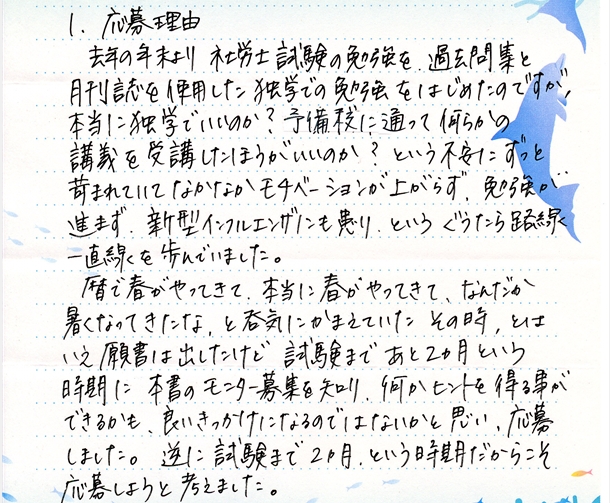 1. 応募理由
去年の年末より 社労士試験の勉強を 過去問集と
月刊誌を使用した 独学での勉強をはじめたのですが、
本当に独学でいいのか？予備校に通って何らかの
講義を受講したほうがいいのか？という不安にずっと
苛まれていてなかなかモチベーションが上がらず、勉強が
進まず、新型インフルエンザにも患り、というぐうたら路線
一直線を歩んでいました。
暦で春がやってきて、本当に春がやってきて、なんだか
暑くなってきたな、と呑気にかまえていたその時、とは
いえ願書は出したけど 試験まであと2ヵ月という
時期に 本書のモニター募集を知り、何かヒントを得る事が
できるかも、良いきっかけになるのではないかと思い、応募
しました。逆に試験まで2ヵ月、という時期だからこそ
応募しようと考えました。